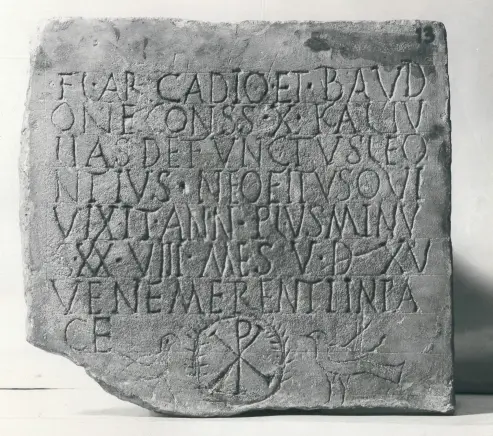 13
FL·ARCADIO·ET·BAVD
ONE CONSS·X·KAL·IV
LIAS DEFVNCTVS LEO
NTIVS·NEOFITVS QVI
VIXIT·ANN·PLVSMINV
·XX·VIII·MES·V·D·XV
VENEMERENTI IN PA
CE